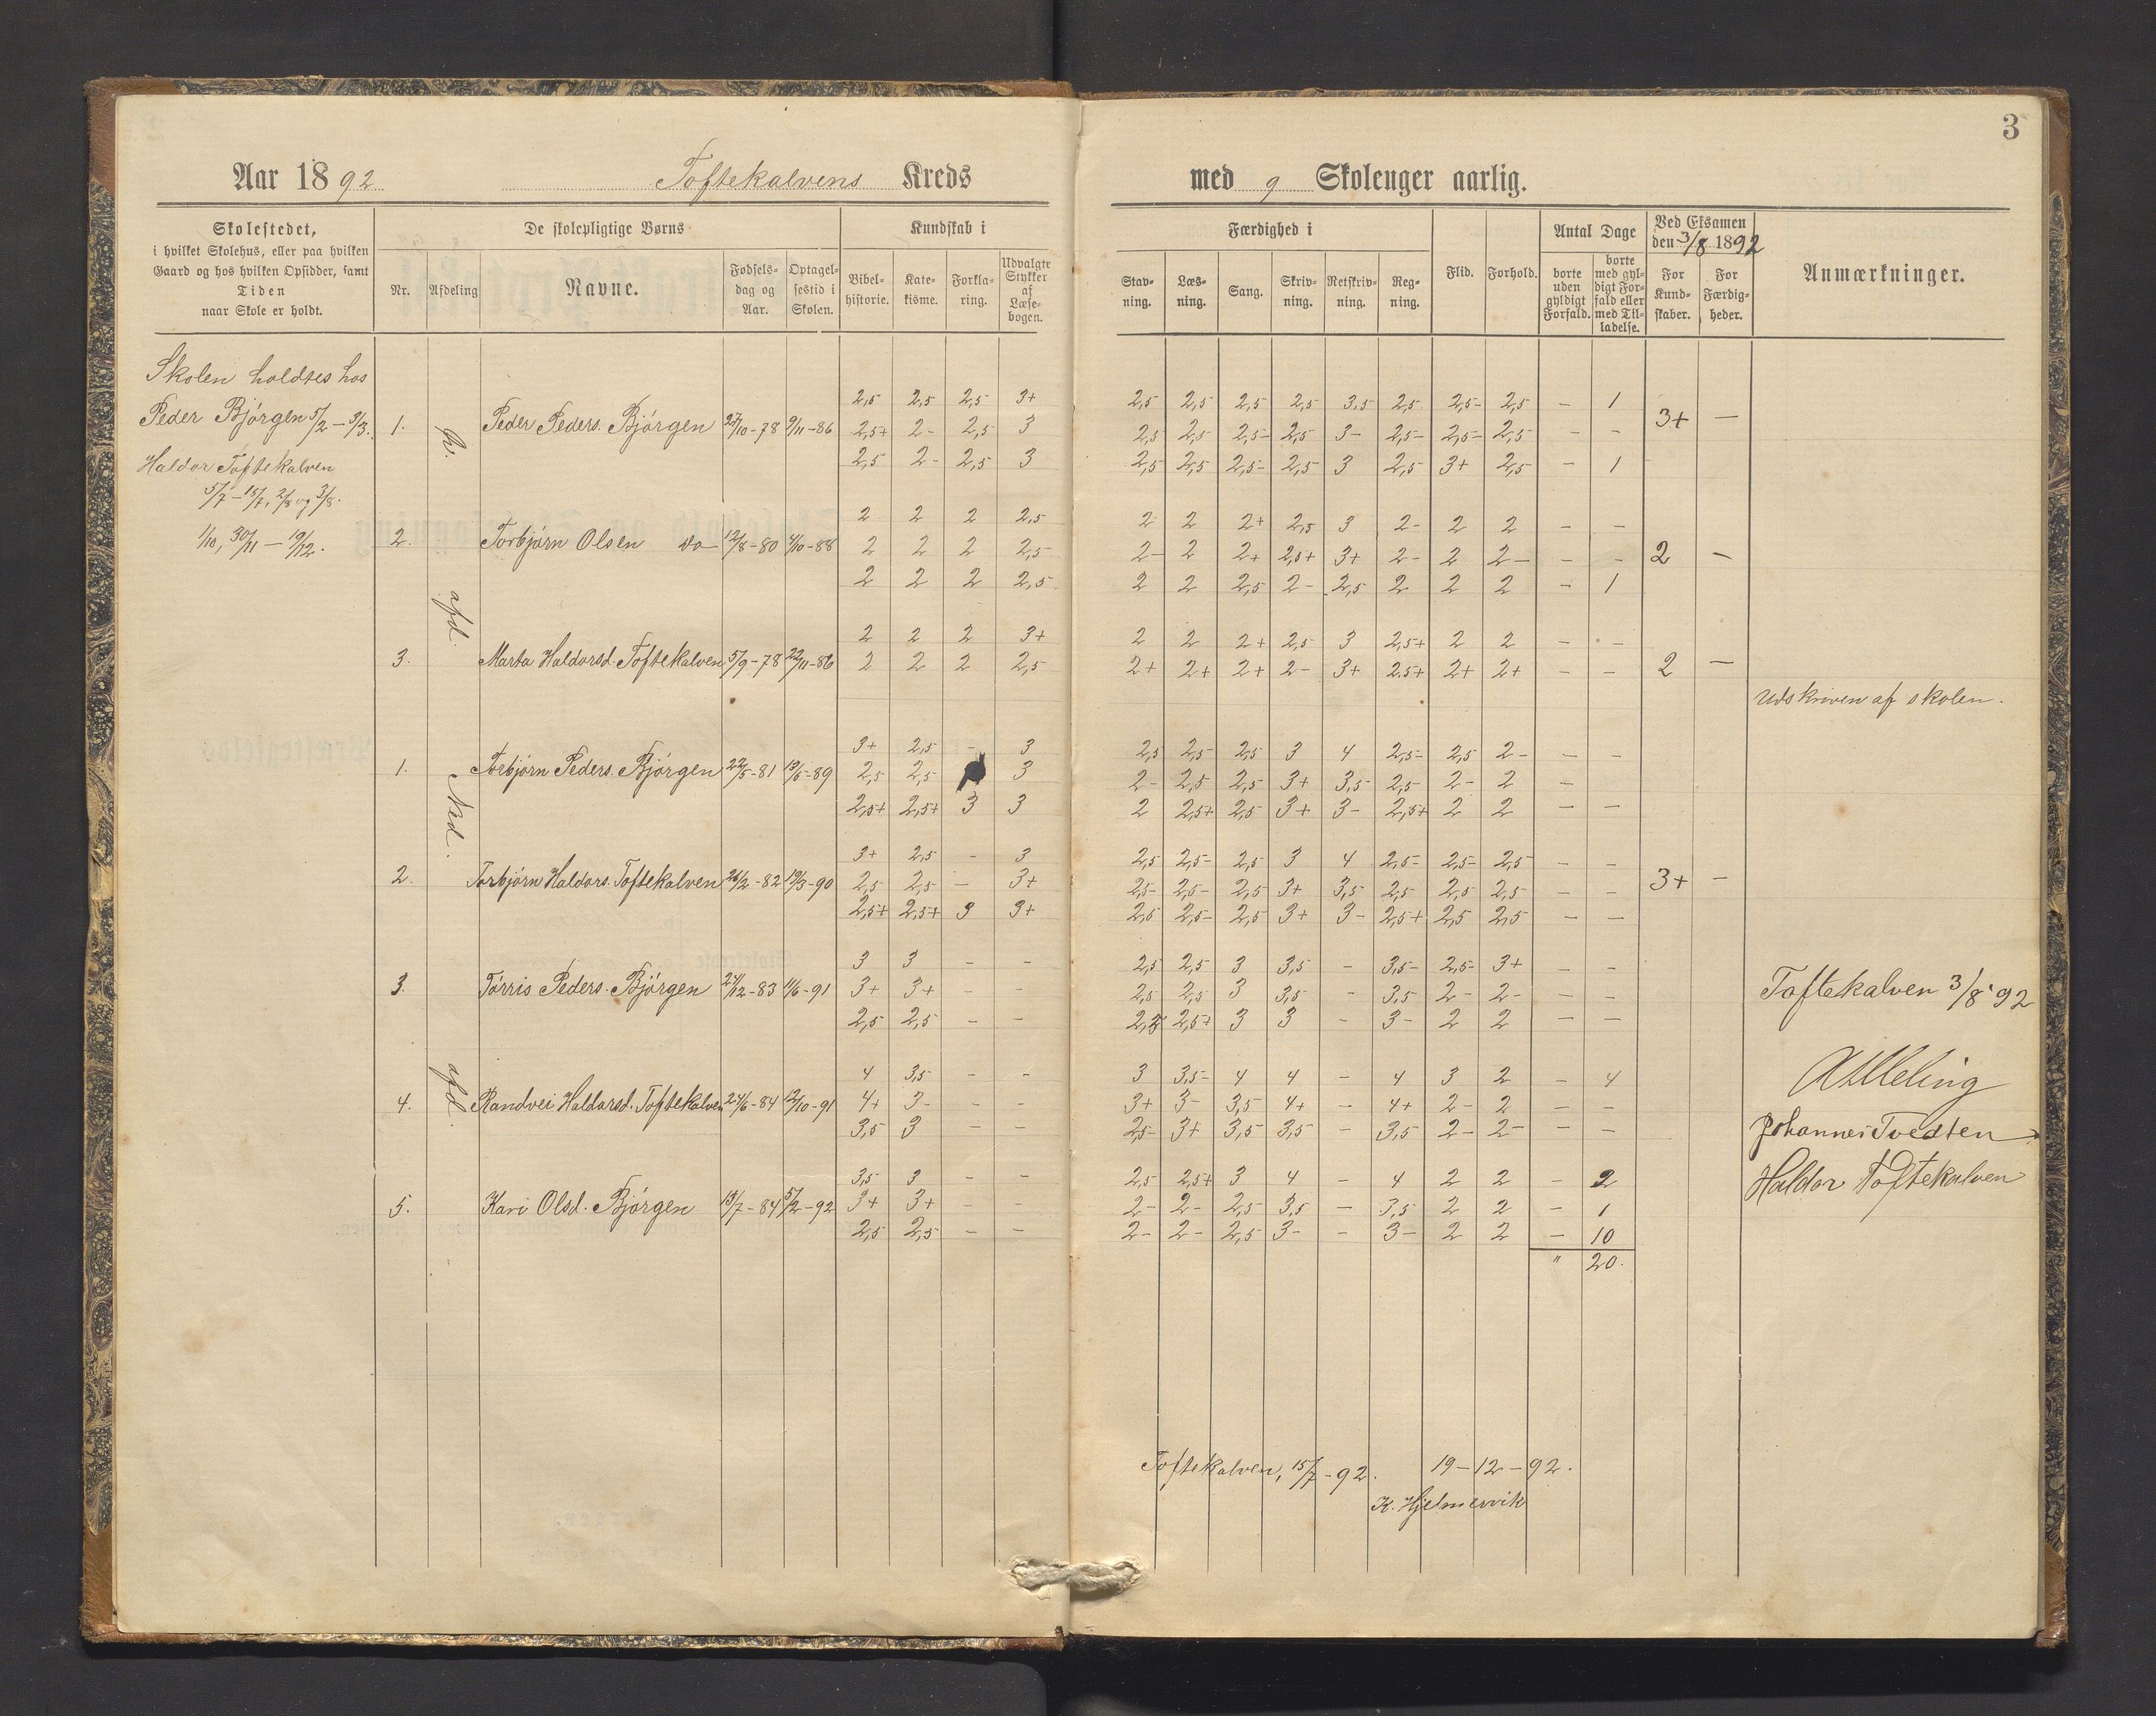 3
Aar 1892 Toftekalvens Kreds med 9 Skoleuger aarlig.
Skolestedet,
i hvilket Skolehus, eller paa hvilken
Gaard og hos hvilken Opsidder, samt
Tiden
naar Skole er holdt.
De skolepligtige Børns
Nr. Afdeling Navne. Fødselsdag og Aar. Optagelsestid i Skolen.
Kundskab i
Bibelhistorie. Katekisme. Forklaring. Udvalgte Stykker af Læsebogen.
Færdighed i
Stavning. Læsning. Sang. Skrivning. Retskrivning. Regning.
Flid. Forhold.
Antal Dage
borte uden gyldigt Forfald. borte med gyldigt Forfald eller med Tilladelse.
Ved Eksamen
den 3/8 1892
For Kundskaber. For Færdigheder.
Anmærkninger.
Skolen holdtes hos
Peder Bjørgen 5/2 – 3/3.
Haldor Toftekalven
5/7 – 15/7, 2/8 og 3/8.
1/10, 30/11 – 19/12.
2,5 2,5 2,5 3+ 2,5 2,5 2,5 2,5 3,5 2,5 2,5- 2,5 – 1
1. Peder Peders. Bjørgen 27/10-78 9/11-86 2,5+ 2- 2,5 3 2,5 2,5 2,5- 2,5 3- 2,5- 2,5- 2,5 – – 3+ –
2,5 2- 2,5 3 2,5 2,5 2,5- 2,5 3 2,5 3+ 2,5 – 1
2 2 2 2,5 2 2 2+ 2,5 3 2- 2 2 – –
2. Torbjørn Olsen do 12/8-80 4/10-88 2 2 2 2,5- 2- 2 2+ 2,5+ 3+ 2- 2 2- – – 2 –
2 2 2 2,5 2 2 2,5 2- 2,5 2 2 2 – 1
afd.
2 2 2 3+ 2 2 2+ 2,5 3 2,5+ 2 2 – –
3. Marta Haldorsd. Toftekalven 5/9-78 22/11-86 2 2 2 2,5 2+ 2+ 2+ 2- 3+ 2,5+ 2+ 2+ – – 2 –
Udskriven af skolen.
3+ 2,5 – 3 2,5 2,5- 2,5 3 4 2,5- 2,5 2- – –
1. Torbjørn Peders. Bjørgen 22/5-81 13/6-89 2,5 2,5- 3 2- 2,5 2,5 3+ 3,5 2,5 2- 2 –
2,5+ 2,5+ 3 3 2 2,5+ 2,5 3+ 3- 2,5+ 2 2 – –
Ned.
3+ 2,5 – 3 2,5 2,5- 2,5 3 4 2,5- 2,5- 2,5 – –
2. Torbjørn Haldors. Toftekalven 26/2-82 19/3-90 2,5 2,5- – 3+ 2,5- 2,5- 2,5 3+ 3,5 2,5 2,5 2,5 – – 3+ –
2,5+ 2,5+ 3 3+ 2,5 2,5- 2,5 3+ 3- 2,5+ 2,5 2,5 – –
3 3 – – 2,5 2,5 3 3,5 – 3,5- 2,5- 3+ – –
3. Tørris Peders. Bjørgen 24/12-83 1/6-91 3+ 3+ – – 2,5 2,5 3 3,5 – 3,5 2- 2- – –
2,5 2,5 – – 2,5 2,5+ 3 3 – 3- 2 2 – –
Toftekalven 3/8 '92
afd.
4 3,5 – – 3 3,5- 4 4 – 4 3 2 – 4
4. Randvei Haldorsd. Toftekalven 24/6-84 12/10-91 4+ 3- – – 3+ 3- 3,5 4+ – 4+ 2- 2 – –
3,5 3 – – 2,5- 3+ 3,5 3,5 – 3,5 2- 2- – –
Johannes Tvedten
3,5 3 – – 2,5 2,5+ 3 4 – 4 2 2 – 2
Haldor Toftekalven
5. Kari Olsd. Bjørgen 13/7-84 5/2-92 3+ 3+ – – 2- 2- 2,5 3,5 – 3,5 2 2 – 1
2,5 2,5 – – 2- 2- 2,5 3- – 3- 2 2 – 10
" 20.
Toftekalven, 15/7-92. 19-12-92.
K. Hjelmervik